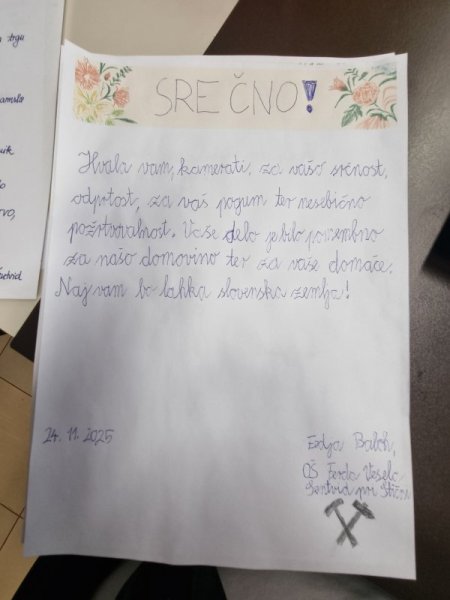 SREČNO!
Hvala vam, kamerati, za vašo srčnost,
odprtost, za vaš pogum ter nesebično
požrtvovalnost. Vaše delo je bilo pomembno
za našo domovino ter za vaše domače.
Naj vam bo lahka slovenska zemlja!
24. 11. 2025
OŠ Ferda Vesela
Šentvid pri Stični
trgu